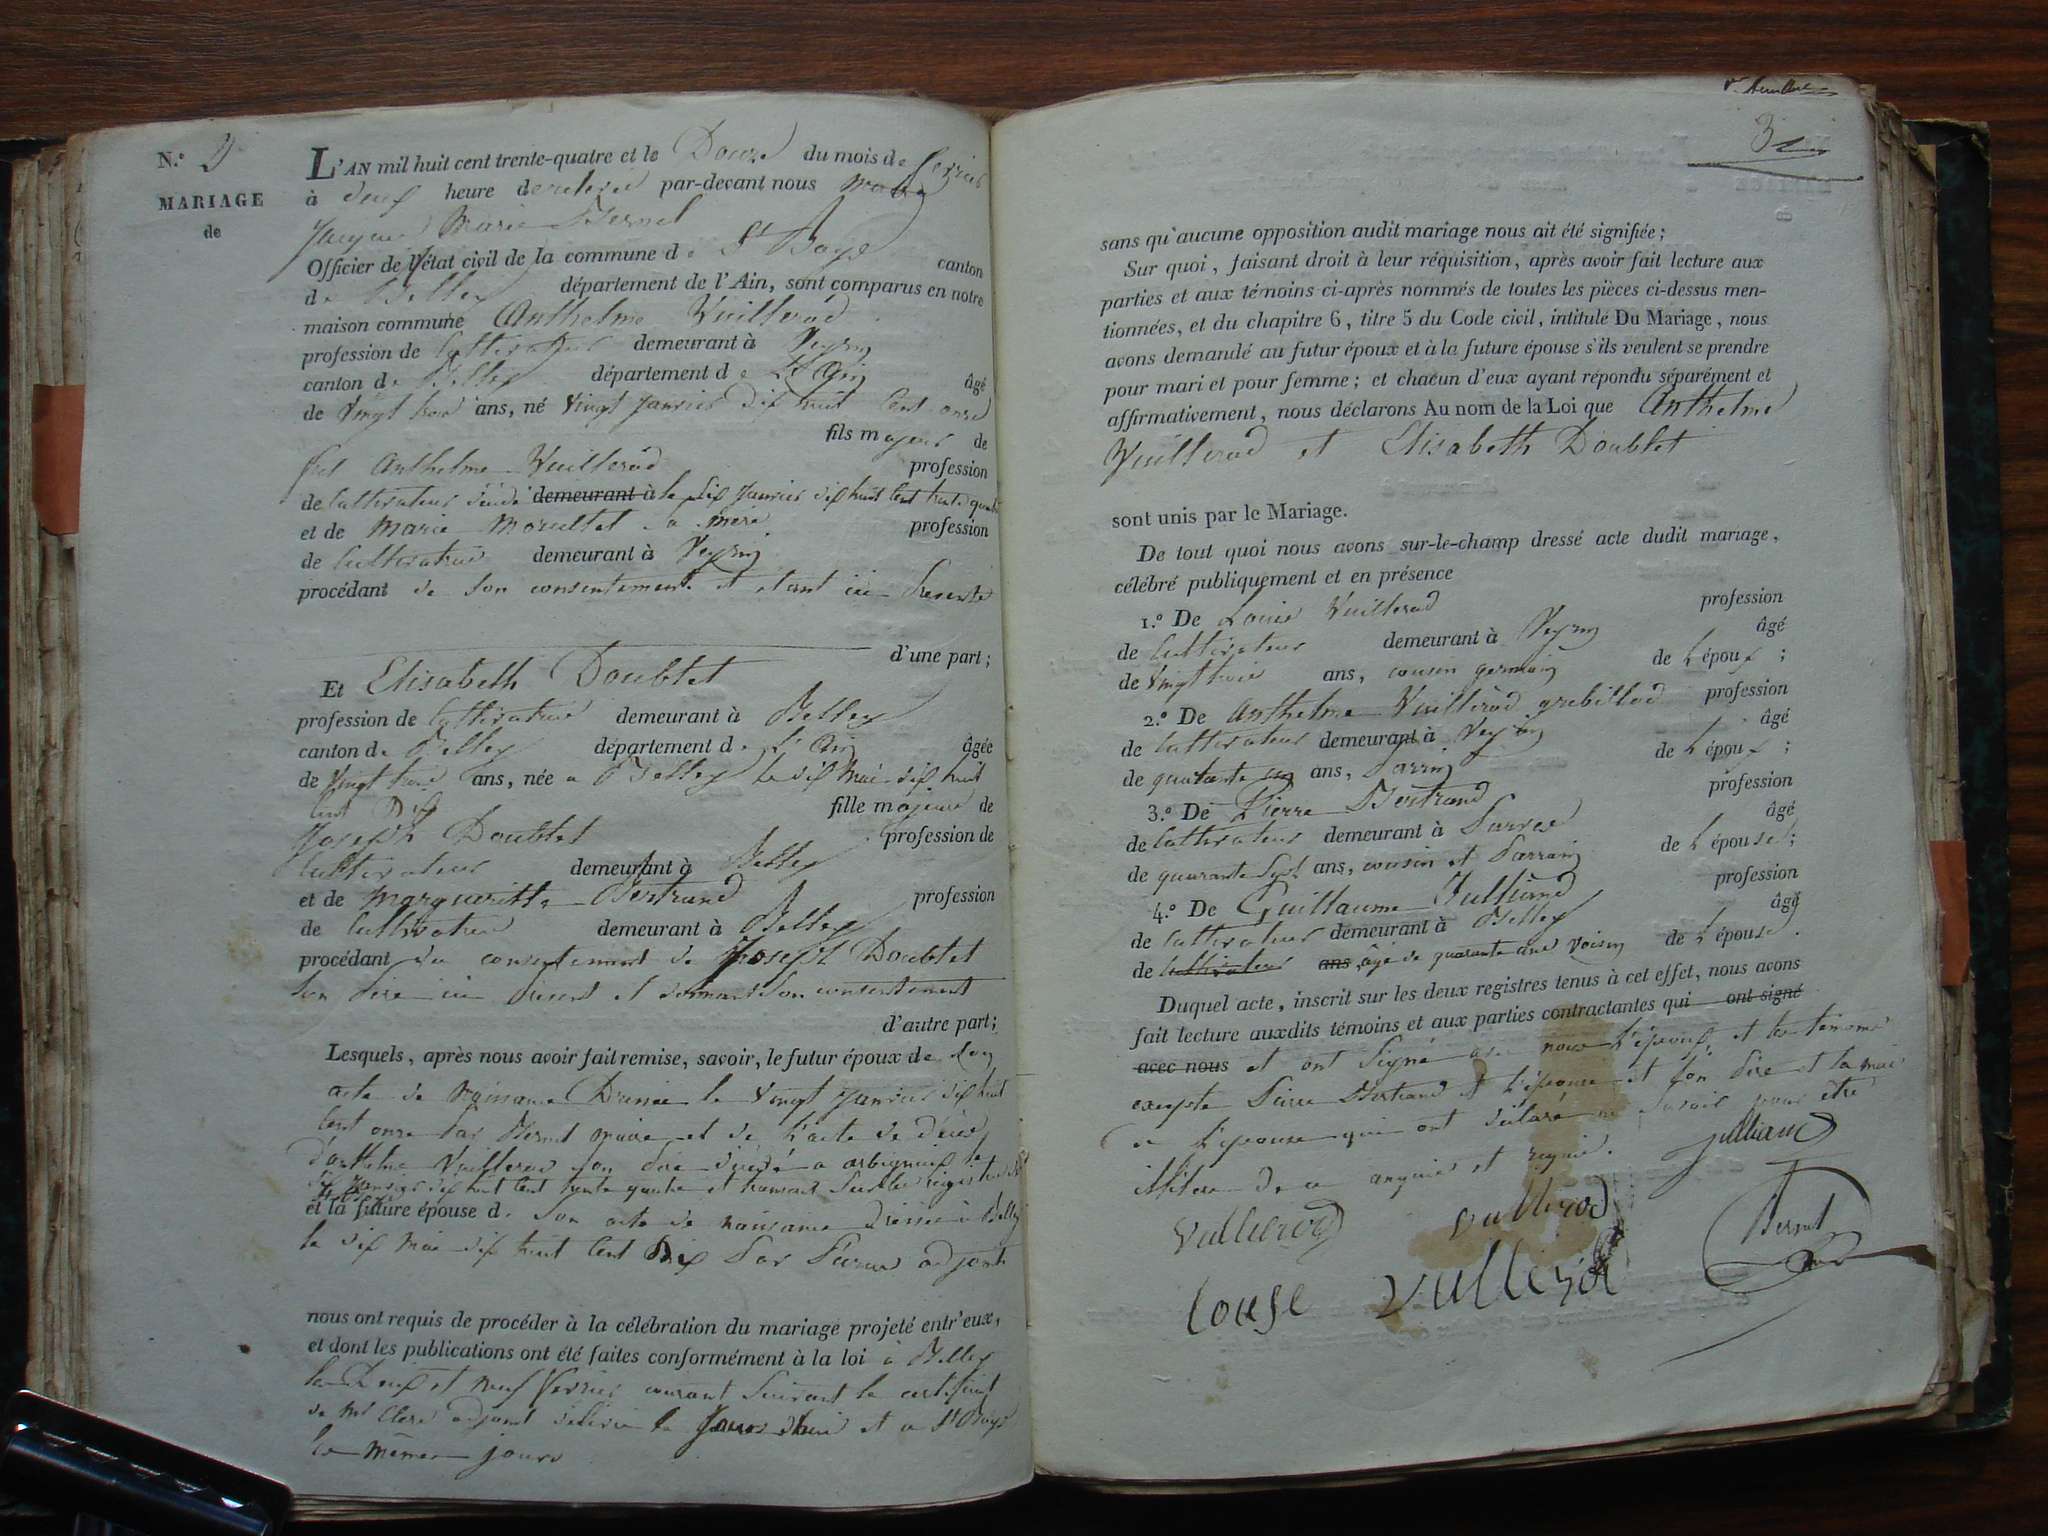 N.o 2
MARIAGE
de
L'AN mil huit cent trente-quatre et le Douze du mois de fevrier
à deux heure par-devant nous
Jacques Marie Bernet
Officier de l'état civil de la commune de St Boys canton
de Belley département de l'Ain, sont comparus en notre
maison commune Anthelme Vuillerod
profession de Cultivateur demeurant à Peyzin
canton de Belley département de L'Ain âgé
de Vingt trois ans, né Vingt Janvier dix huit cent onze
fils majeur de
Anthelme Vuillerod profession
de Cultivateur décédé demeurant à le six Janvier dix huit cent trente quatre
et de Marie Moultet sa mère profession
de Cultivatrice demeurant à Peyzin
procédant de son consentement et etant ici presente
d'une part;
Et Elisabeth Doublet
profession de Cultivatrice demeurant à Belley
canton de Belley département de L'Ain âgée
de Vingt trois ans, née a Belley le dix Mai dix huit
cent Dix fille majeure de
Joseph Doublet profession de
Cultivateur demeurant à Belley
et de Margueritte Bertrand profession
de Cultivatrice demeurant à Belley
procédant du consentement de Joseph Doublet
son père ici present et donnant son consentement
d'autre part;
Lesquels, après nous avoir fait remise, savoir, le futur époux de son
acte de naissance Dressée le vingt Janvier dix huit
cent onze par Bernet maire et de l'acte de décès
d'anthelme Vuillerod son père décédé a arbignieu le
six Janvier dix huit cent trente quatre et transcrit sur les registres
et la future épouse de son acte de naissance Dressée à Belley
le dix mai dix huit cent Dix par adjoint
nous ont requis de procéder à la célébration du mariage projeté entr'eux,
et dont les publications ont été faites conformément à la loi à Belley
le Deux et neuf fevrier courant suivant le certificat
de Mr Clerc adjoint délivré le jours d'hui et a St Boys
le même jours
3
sans qu'aucune opposition audit mariage nous ait été signifiée;
Sur quoi, faisant droit à leur réquisition, après avoir fait lecture aux
parties et aux témoins ci-après nommés de toutes les pièces ci-dessus men-
tionnées, et du chapitre 6, titre 5 du Code civil, intitulé Du Mariage, nous
avons demandé au futur époux et à la future épouse s'ils veulent se prendre
pour mari et pour femme; et chacun d'eux ayant répondu séparément et
affirmativement, nous déclarons Au nom de la Loi que Anthelme
Vuillerod et Elisabeth Doublet
sont unis par le Mariage.
De tout quoi nous avons sur-le-champ dressé acte dudit mariage,
célébré publiquement et en présence
1.o De Louis Vuillerod profession
de Cultivateur demeurant à Peyzin âgé
de Vingt trois ans, cousin germain de L'époux;
2.o De Anthelme Vuillerod grebillod profession
de Cultivateur demeurant à Peyzin âgé
de quarante ans, Parrin de L'époux;
3.o De Pierre Bertrand profession
de Cultivateur demeurant à âgé
de quarante sept ans, cousin et Parrain de L'épouse;
4.o De Guillaume Julliand profession
de Cultivateur demeurant à Belley âgé
de Cultivateur ans âgé de quarante ans voisin de L'épouse.
Duquel acte, inscrit sur les deux registres tenus à cet effet, nous avons
fait lecture auxdits témoins et aux parties contractantes qui ont signé
avec nous et ont signé avec nous L'époux, et les témoins
excepte Pierre Bertrand et L'épouse et son père et la mère
de L'épouse qui ont déclaré ne savoir pour être
illitere de ce enquis et requis.
Julliand
Vullierod
Vullierod
Bernet
Louise Vullierod